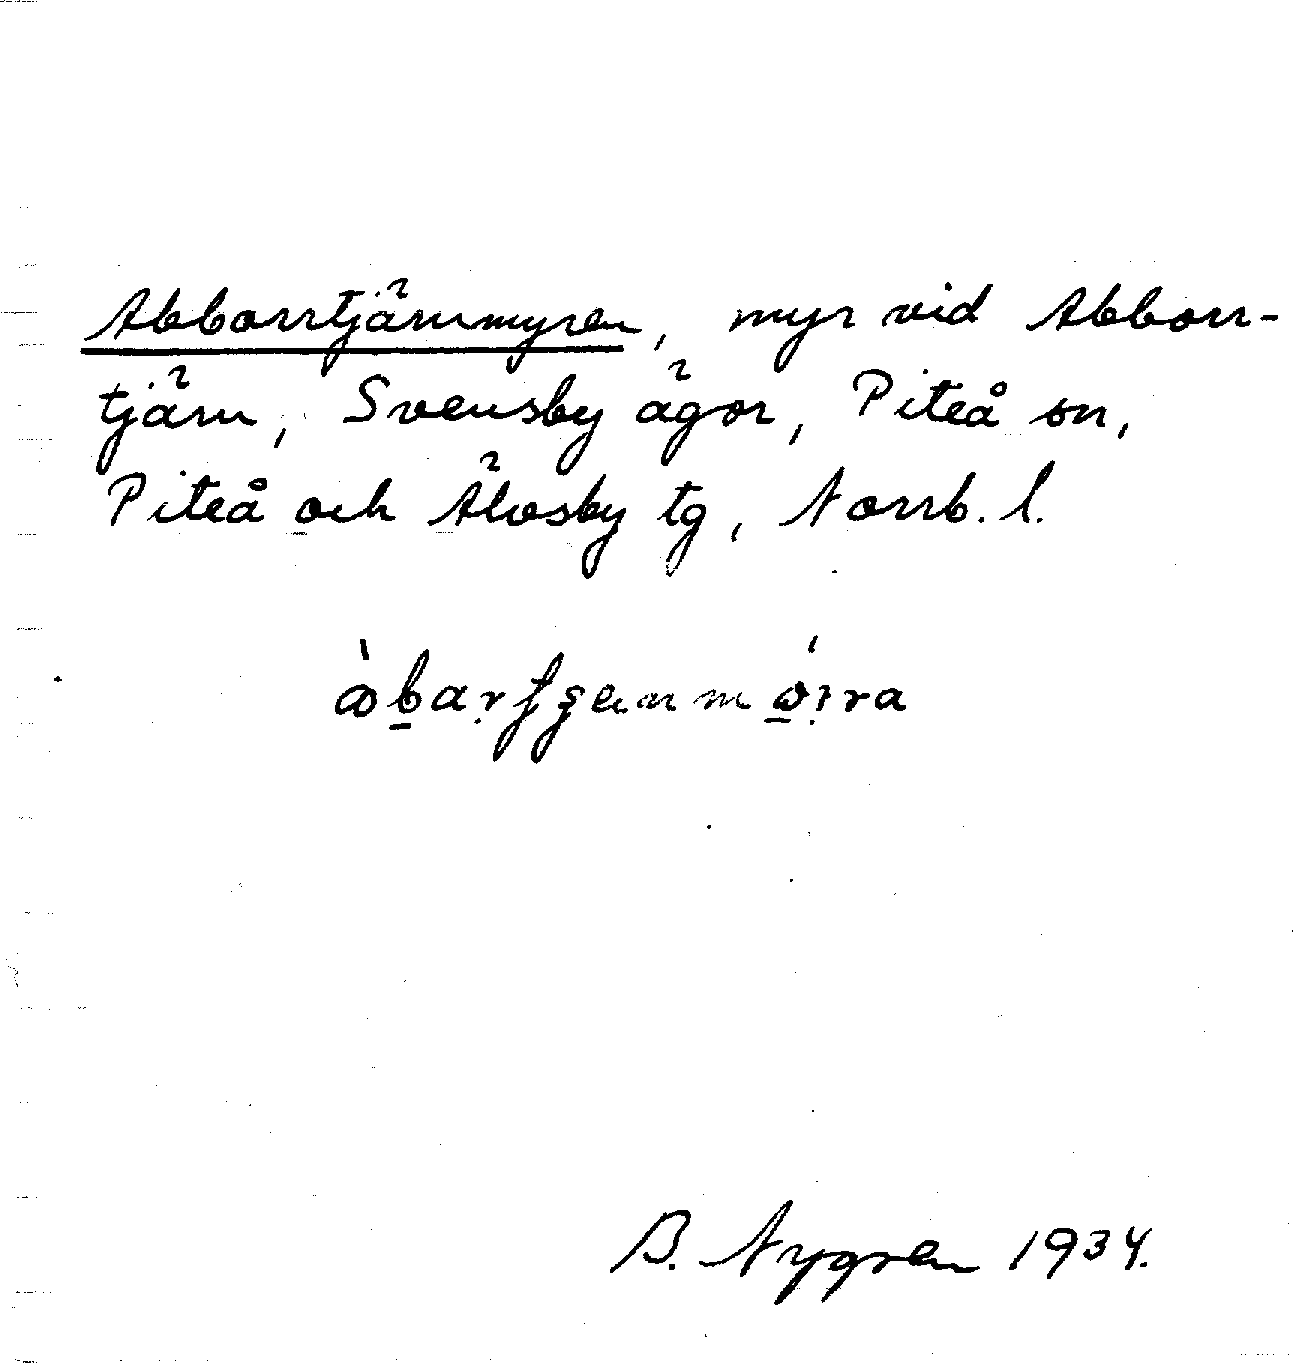 Abborrtjärnmyren, myr vid Abborr-
tjärn, Svensby ägor, Piteå sn,
Piteå och Älvsby tg, Norrb. l.
B. Nygren 1934.